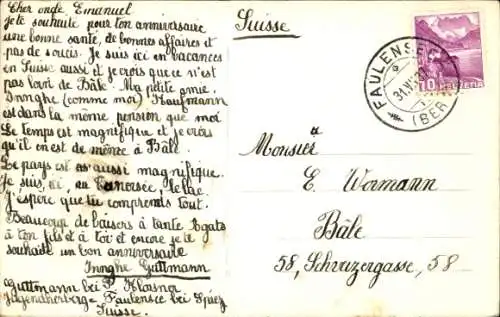 Cher oncle Emanuel
je te souhaite pour ton anniversaire
une bonne santé, de bonnes affaires et
pas de soucis. Je suis ici en vacances
en Suisse aussi et je crois que ce n'est
pas loin de Bâle. Ma petite amie,
Innghe (comme moi) Kaufmann
est dans la même pension que moi
Le temps est magnifique et je crois
qu'il en est de même à Bâle.
Le pays est aussi magnifique.
Je suis, ici, au le lac.
J'espère que tu comprends tout.
Beaucoup de baisers à tante Agata
à ton fils et à toi et encore je te
souhaite un bon anniversaire
Innghe Guttmann
Guttmann bei F. Klasner
Jugendherberge Faulensee bei Spiez
Suisse.
Suisse
FAULENSEE
(BERN
10 HELVETIA
Monsieur
E. Wormann
Bâle
58, Schweizergasse, 58